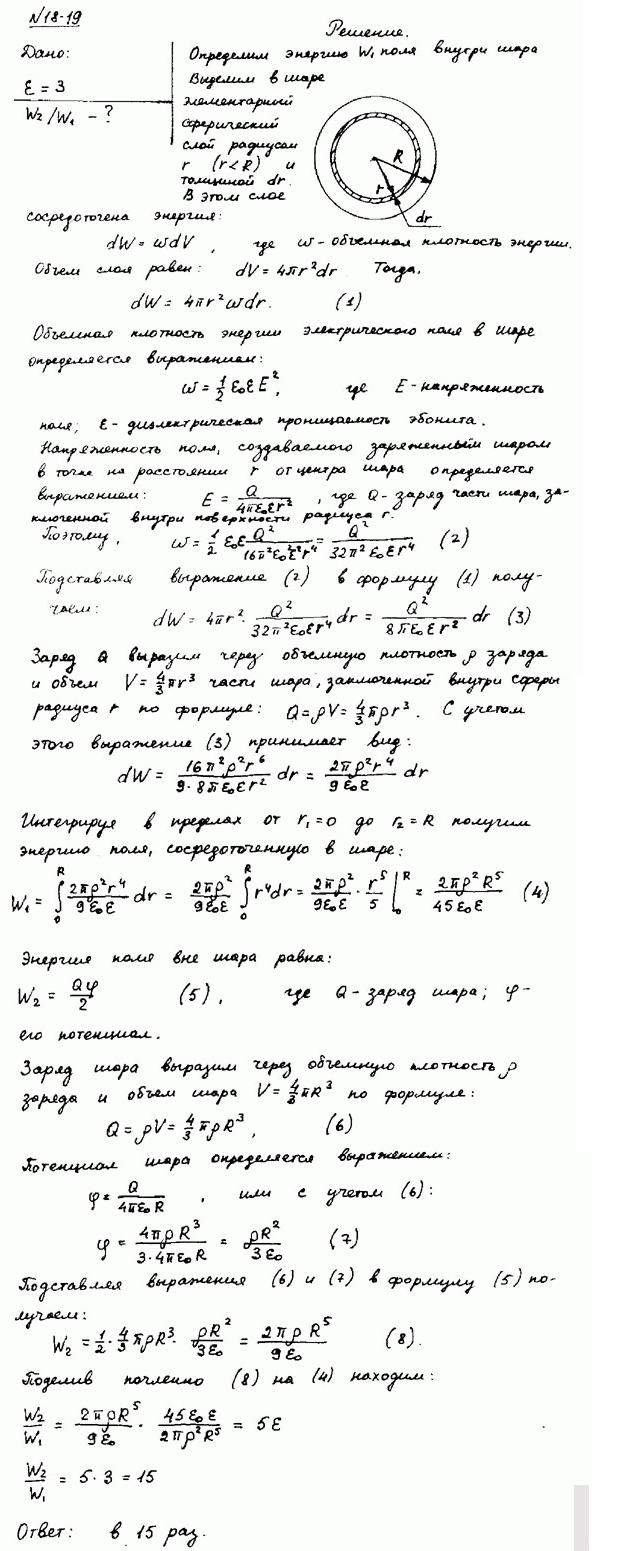 №18-19
Решение.
Дано:
ε = 3
W₂/W₁ - ?
Определим энергию W₁ поля внутри шара
Выделим в шаре
элементарный
сферический
слой радиусом
r (r<R) и
толщиной dr.
В этом слое
R
r
dr
сосредоточена энергия:
dW = ωdV, где ω - объемная плотность энергии.
Объем слоя равен: dV = 4πr²dr Тогда,
dW = 4πr²ωdr. (1)
Объемная плотность энергии электрического поля в шаре
определяется выражением:
ω = 1/2 ε₀εE², где E - напряженность
поля; ε - диэлектрическая проницаемость эбонита.
Напряженность поля, создаваемого заряженным шаром
в точке на расстоянии r от центра шара определяется
выражением: E = Q/4πε₀εr², где Q - заряд части шара, за-
ключенной внутри поверхности радиуса r.
Поэтому, ω = 1/2 ε₀ε Q²/16π²ε₀²ε²r⁴ = Q²/32π²ε₀εr⁴ (2)
Подставляя выражение (2) в формулу (1) полу-
чаем: dW = 4πr² · Q²/32π²ε₀εr⁴ dr = Q²/8πε₀εr² dr (3)
Заряд Q выразим через объемную плотность ρ заряда
и объем V = 4/3 πr³ части шара, заключенной внутри сферы
радиуса r по формуле: Q = ρV = 4/3 πρr³. С учетом
этого выражение (3) принимает вид:
dW = 16π²ρ²r⁶/9·8πε₀εr² dr = 2πρ²r⁴/9ε₀ε dr
Интегрируя в пределах от r₁=0 до r₂=R получим
энергию поля, сосредоточенную в шаре:
W₁ = ∫₀ᴿ 2πρ²r⁴/9ε₀ε dr = 2πρ²/9ε₀ε ∫₀ᴿ r⁴dr = 2πρ²/9ε₀ε · r⁵/5 |₀ᴿ = 2πρ²R⁵/45ε₀ε (4)
Энергия поля вне шара равна:
W₂ = Qφ/2 (5), где Q - заряд шара; φ -
его потенциал.
Заряд шара выразим через объемную плотность ρ
заряда и объем шара V = 4/3 πR³ по формуле:
Q = ρV = 4/3 πρR³, (6)
Потенциал шара определяется выражением:
φ = Q/4πε₀R, или с учетом (6):
φ = 4πρR³/3·4πε₀R = ρR²/3ε₀ (7)
Подставляя выражения (6) и (7) в формулу (5) по-
лучаем:
W₂ = 1/2 · 4/3 πρR³ · ρR²/3ε₀ = 2πρR⁵/9ε₀ (8).
Поделив почленно (8) на (4) находим:
W₂/W₁ = 2πρR⁵/9ε₀ · 45ε₀ε/2πρ²R⁵ = 5ε
W₂/W₁ = 5·3 = 15
Ответ: в 15 раз.